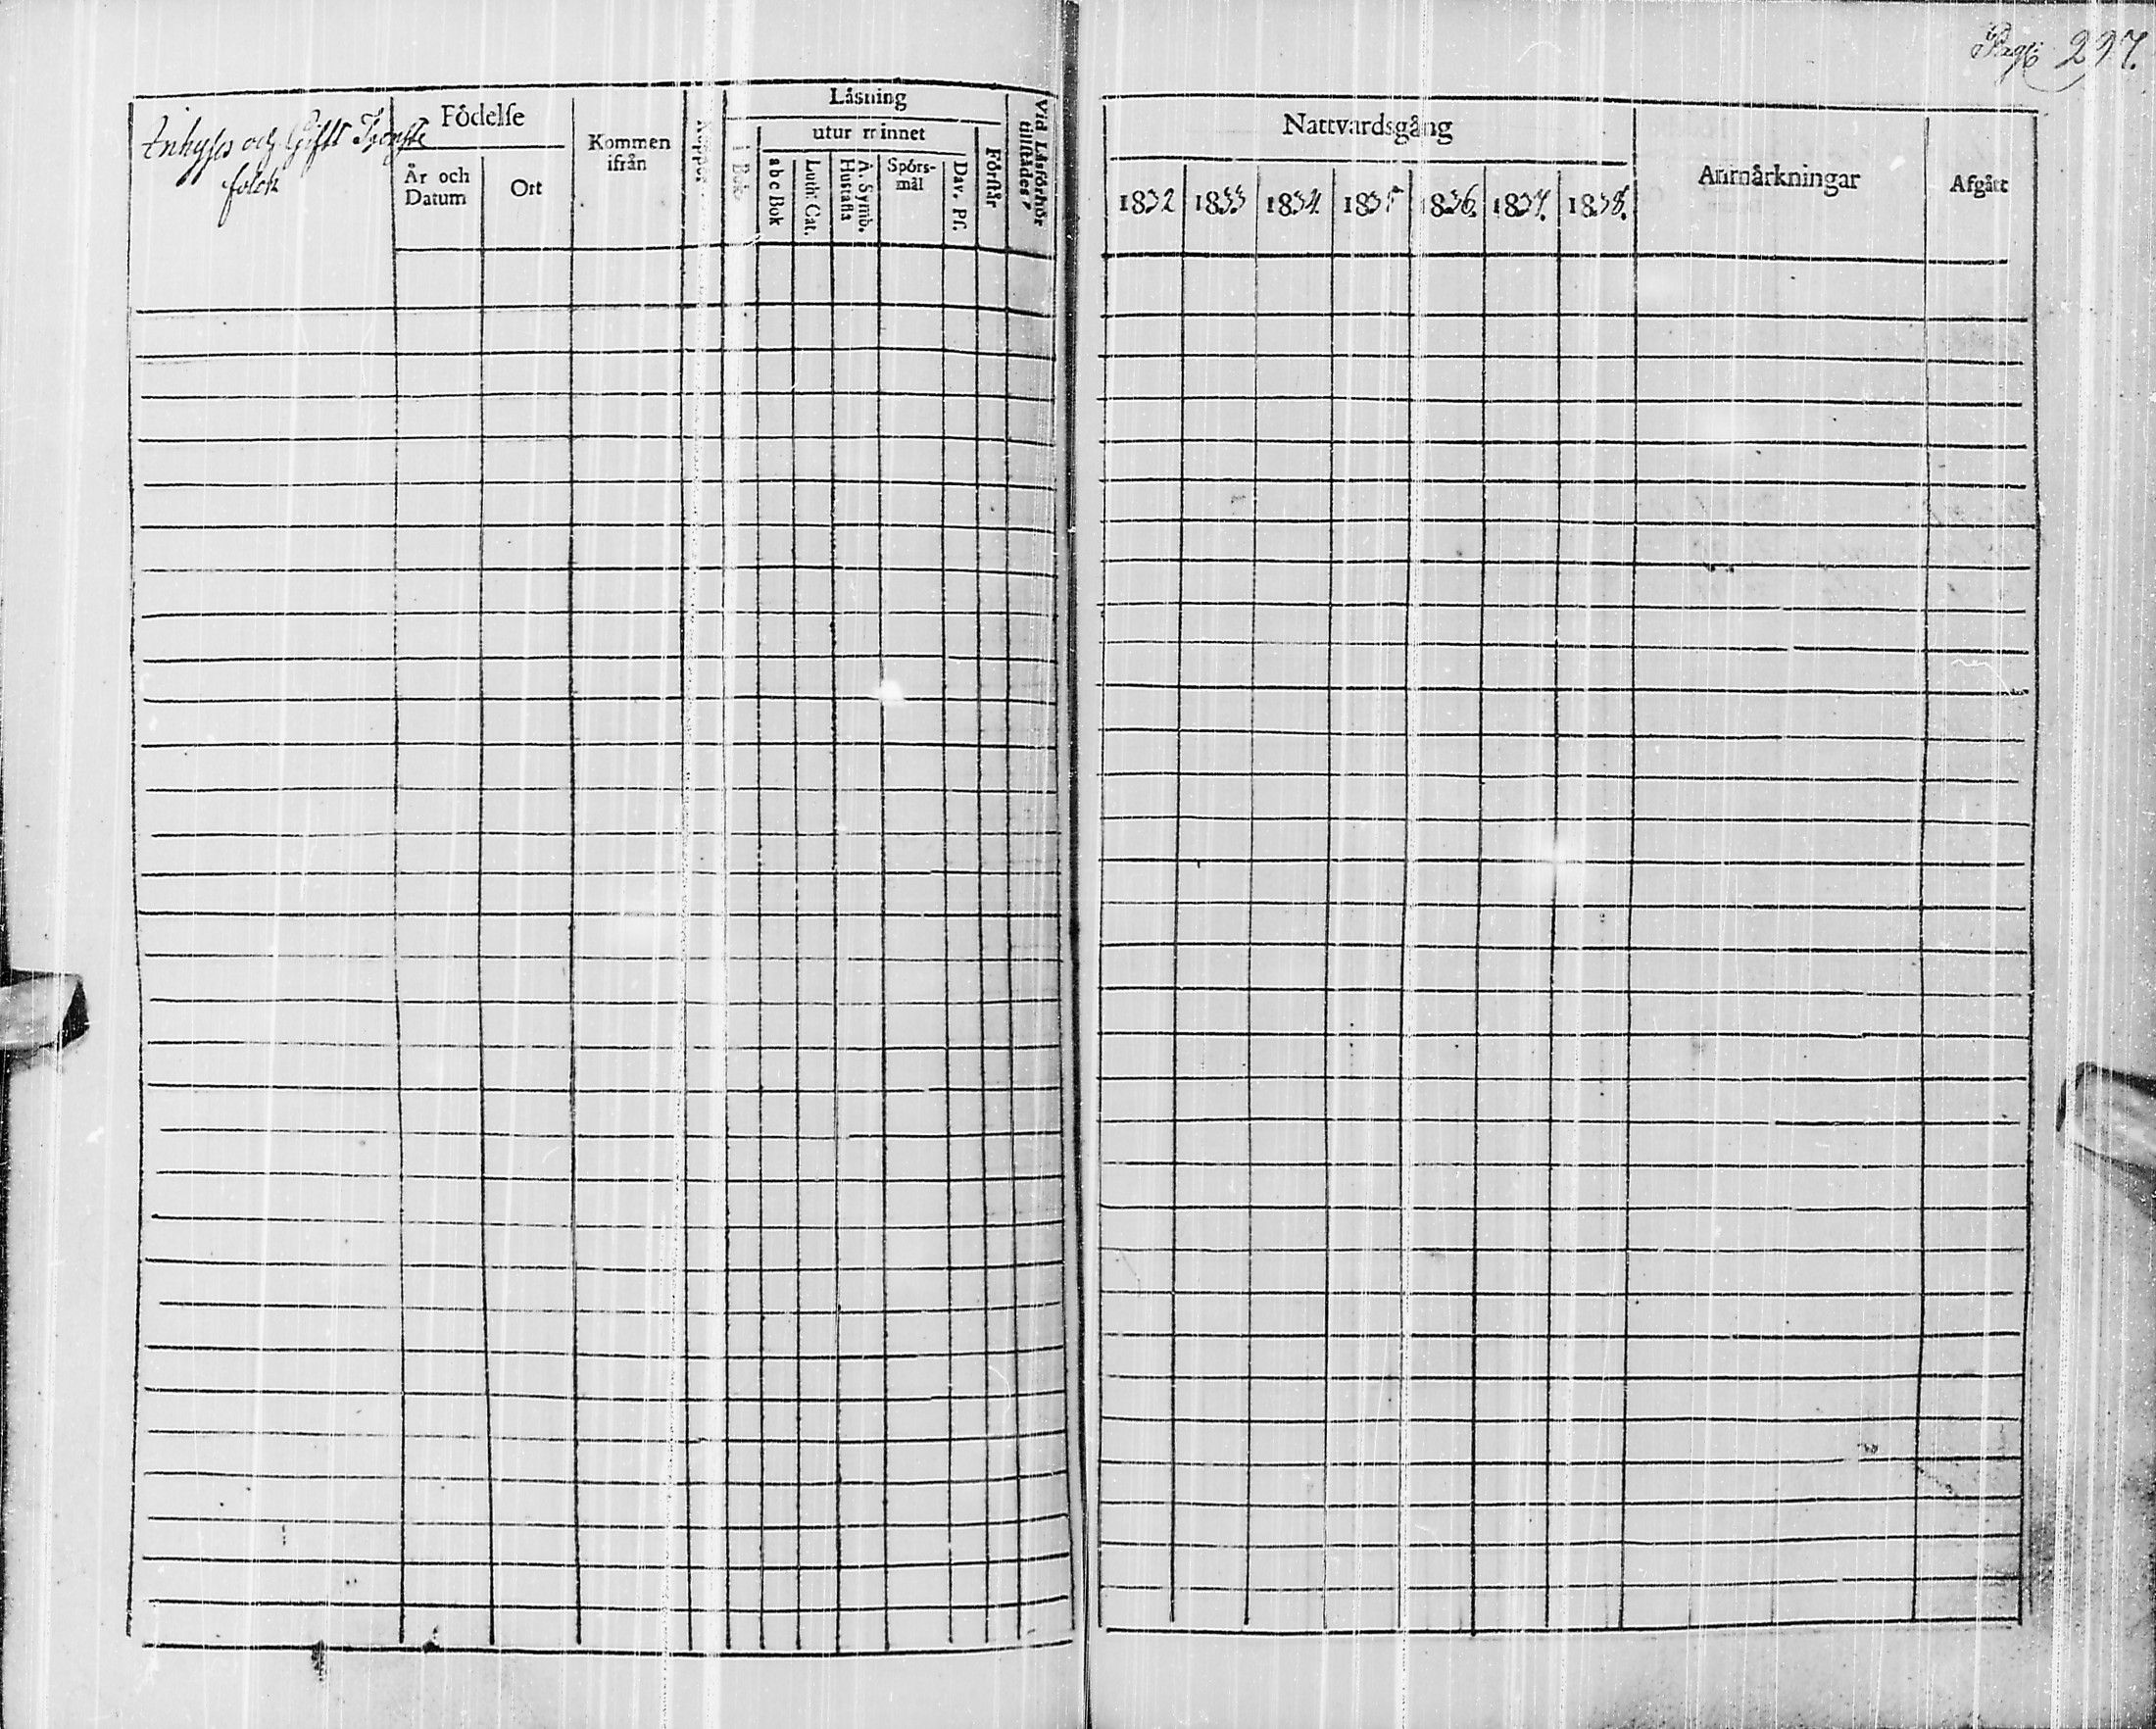 Pag: 297.
Inhyses och Gift Tjenste
folck
Födelse
År och
Datum
Ort
Kommen
ifrån
Koppor
Låsning
i Bok
utur minnet
abc Bok
Luth: Cat.
A. Symb.
Hustafla
Spörs-
mål
Dav. Ps.
Förstår
Vid Låsförhör
tillstådes
Nattvardsgång
1832 1833 1834. 1835 1836. 1837. 1838.
Anmårkningar
Afgått